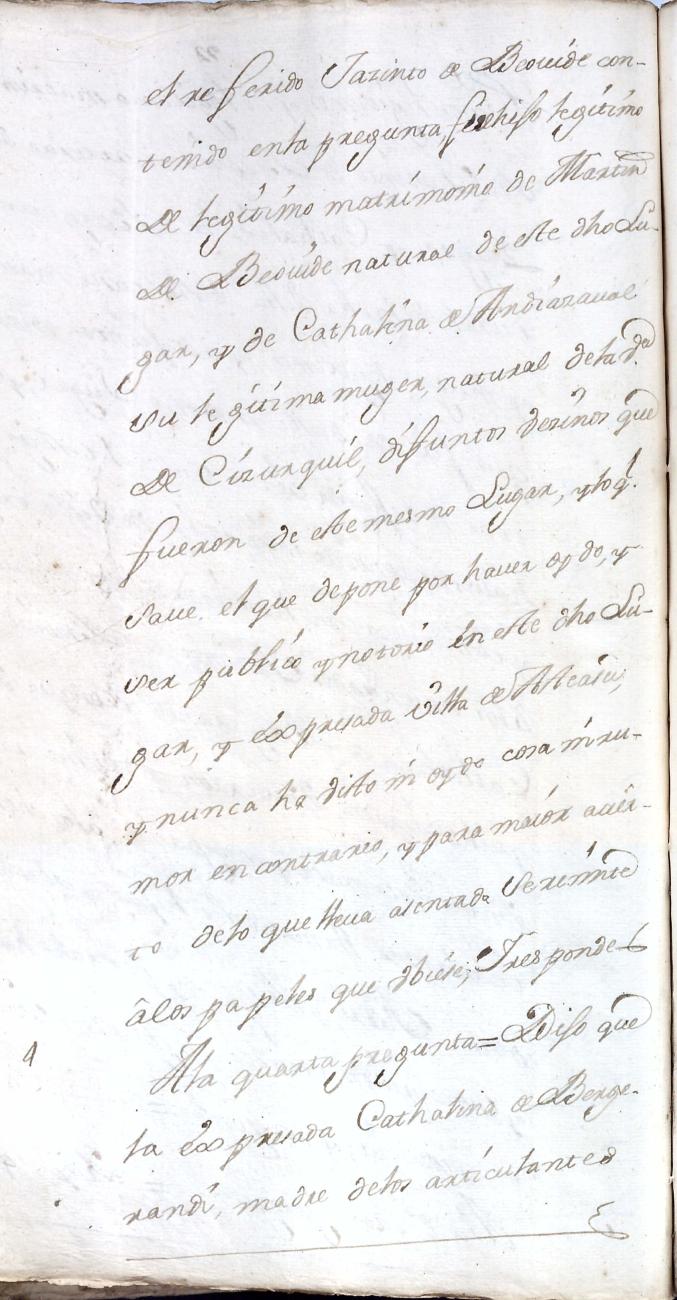 el referido Jazinto de Beovide con-
tenido en la pregunta, fue hijo legitimo
De legitimo matrimonio de Martin
De Beovide natural de este dho Lu-
gar, y de Cathalina de Andiazaval
su legitima muger, natural de la
De Cizurquil, difuntos vezinos que
fueron de este mesmo Lugar, y lo q.
save el que depone por haver oydo, y
ser publico y notorio en este dho Lu-
gar, y expresada villa de
y nunca ha visto ni oydo cosa ni ru-
mor en contrario, y para maior acier-
to de lo que lleva asentado Se remite
â los papeles que obiere, Y responde
4 A la quarta pregunta = Dijo que
la expresada Cathalina de Berge-
randi, madre de los articulantes